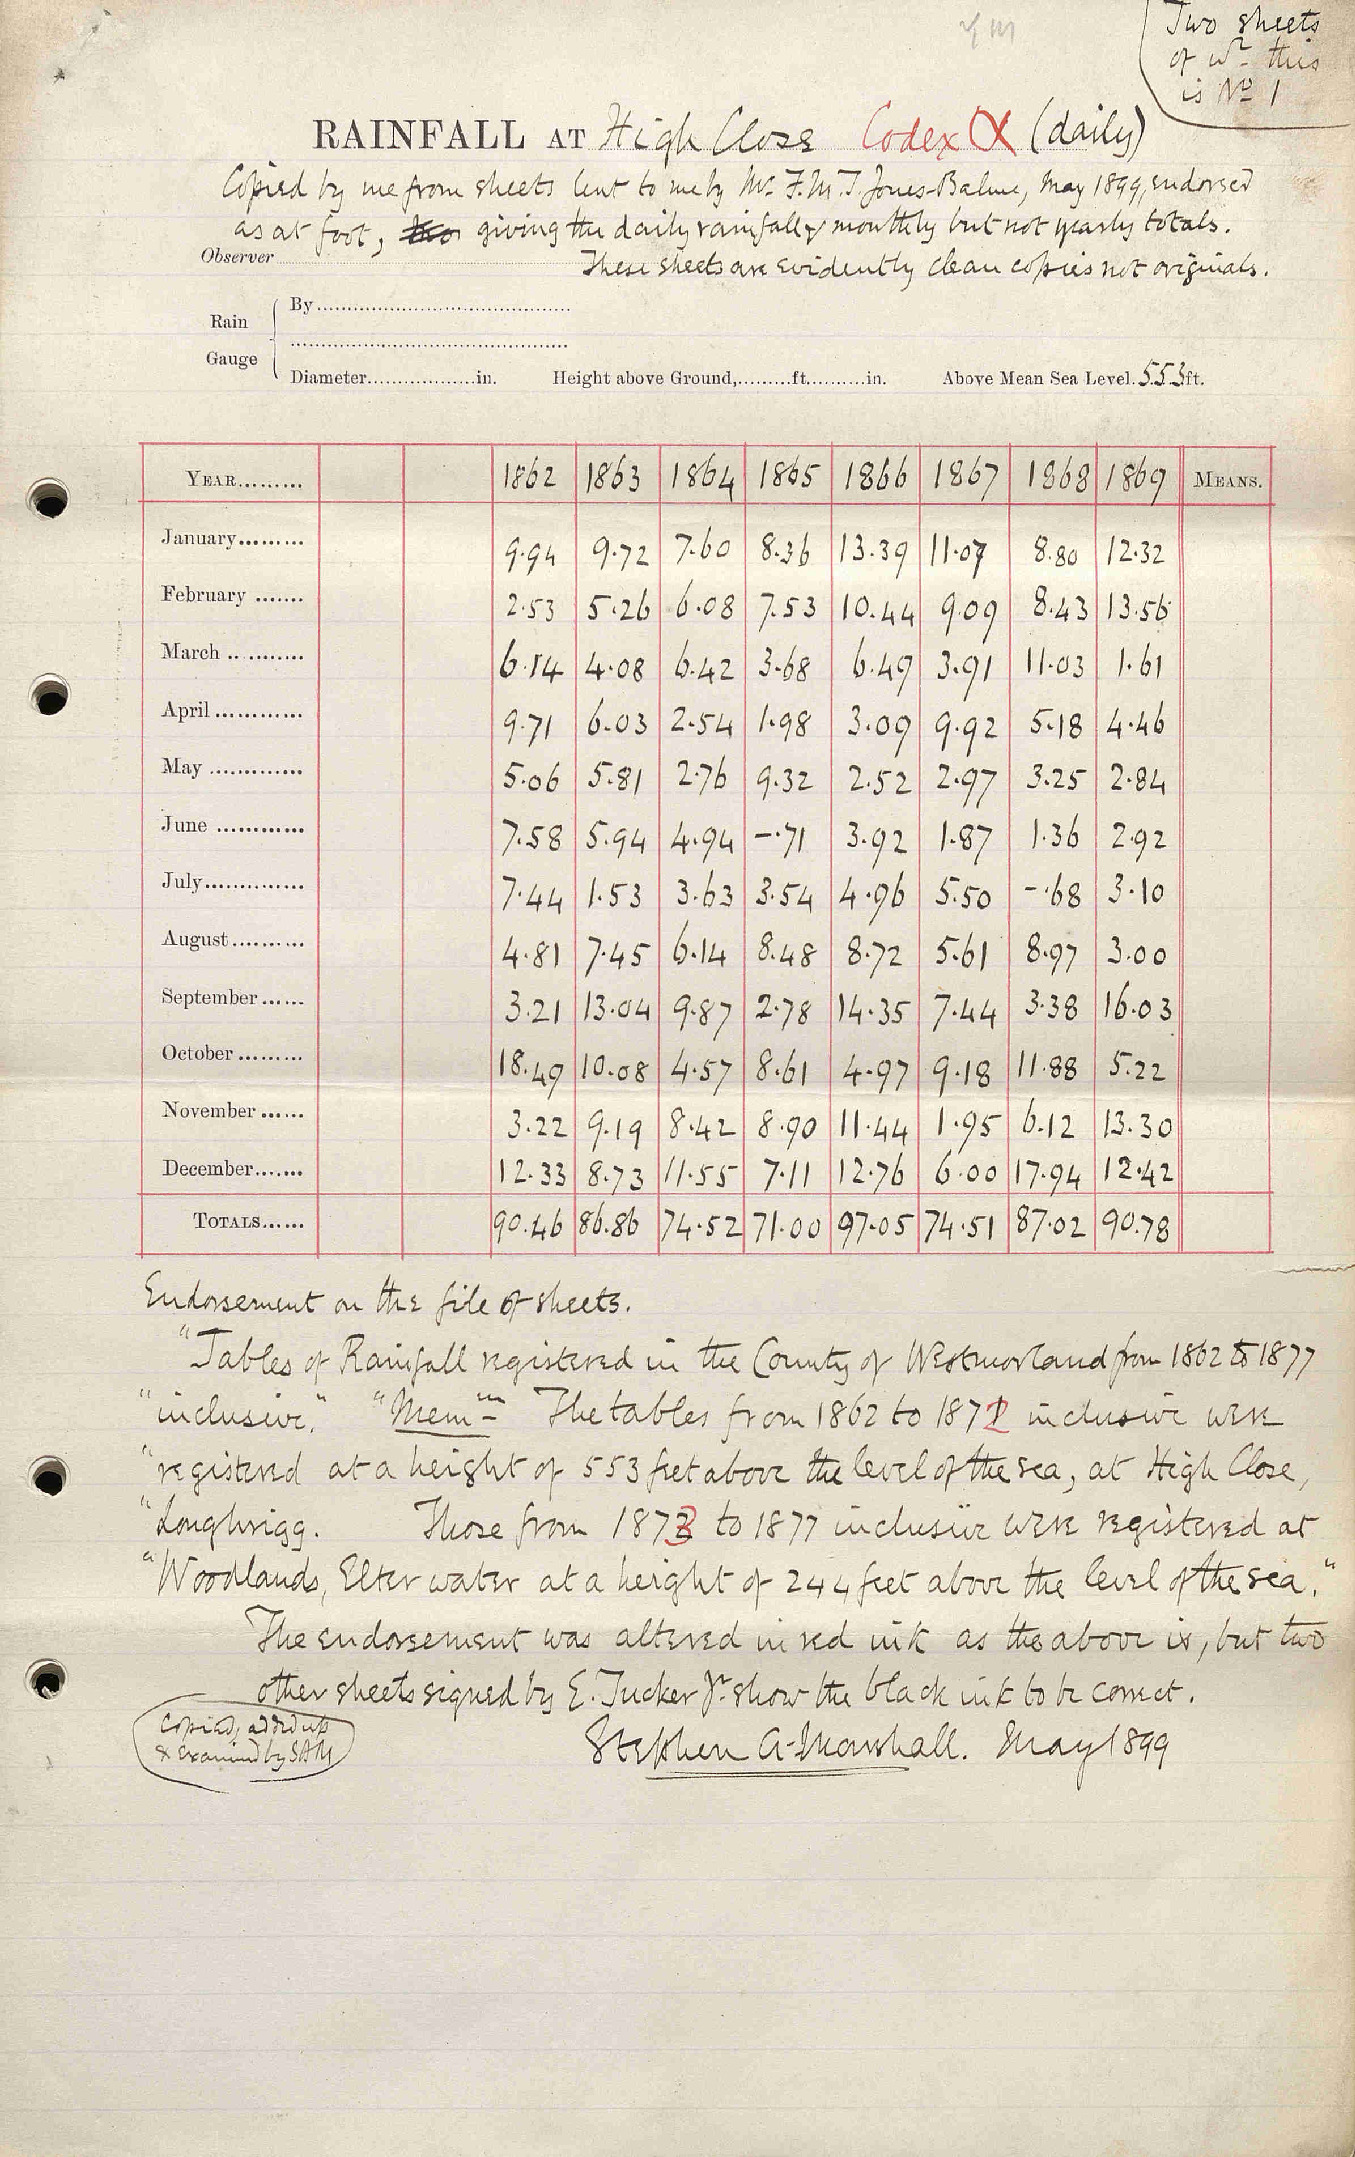 Two sheets
of wh this
is No 1
RAINFALL AT High Close Codex α (daily)
Copied by me from sheets lent to me by Mr. F. M. T. Jones-Balme, May 1899, endorsed
as at foot, giving the daily rainfall & monthly but not yearly totals.
Observer These sheets are evidently clean copies not originals.
Rain Gauge
By
Diameter in. Height above Ground, ft. in. Above Mean Sea Level 553 ft.
YEAR 1862 1863 1864 1865 1866 1867 1868 1869 MEANS.
January 9.94 9.72 7.60 8.36 13.39 11.07 8.80 12.32
February 2.53 5.26 6.08 7.53 10.44 9.09 8.43 13.56
March 6.14 4.08 6.42 3.68 6.49 3.91 11.03 1.61
April 9.71 6.03 2.54 1.98 3.09 9.92 5.18 4.46
May 5.06 5.81 2.76 9.32 2.52 2.97 3.25 2.84
June 7.58 5.94 4.94 -.71 3.92 1.87 1.36 2.92
July 7.44 1.53 3.63 3.54 4.96 5.50 -.68 3.10
August 4.81 7.45 6.14 8.48 8.72 5.61 8.97 3.00
September 3.21 13.04 9.87 2.78 14.35 7.44 3.38 16.03
October 18.49 10.08 4.57 8.61 4.97 9.18 11.88 5.22
November 3.22 9.19 8.42 8.90 11.44 1.95 6.12 13.30
December 12.33 8.73 11.55 7.11 12.76 6.00 17.94 12.42
TOTALS 90.46 86.86 74.52 71.00 97.05 74.51 87.02 90.78
Endorsement on the file of sheets.
"Tables of Rainfall registered in the County of Westmorland from 1862 to 1877
"inclusive." "Memm The tables from 1862 to 1872 inclusive were
"registered at a height of 553 feet above the level of the sea, at High Close,
"Loughrigg. Those from 1873 to 1877 inclusive were registered at
"Woodlands, Elterwater at a height of 244 feet above the level of the sea."
The endorsement was altered in red ink as the above is, but two
other sheets signed by E. Tucker Jr. show the black ink to be correct.
Copied, added up
& examined by SAM
Stephen A. Marshall. May 1899